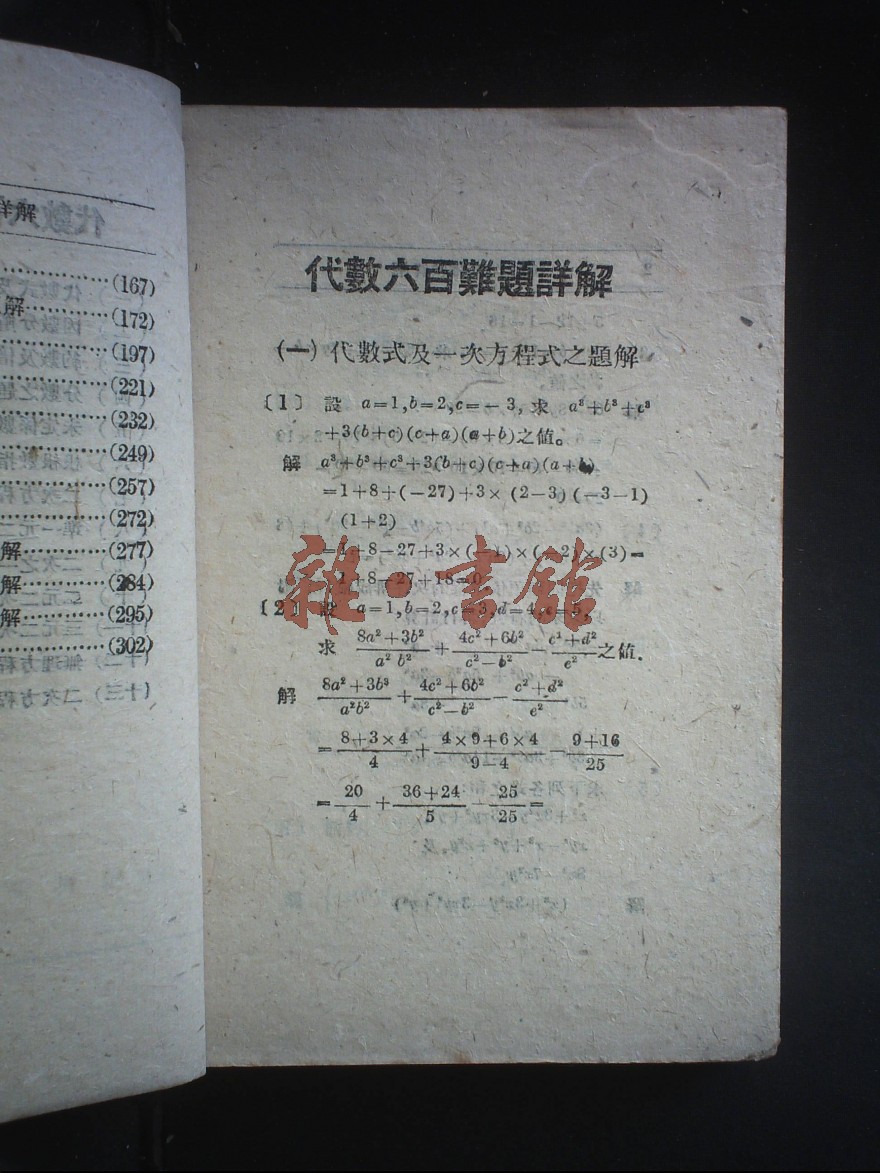 詳解
(167)
解 (172)
(197)
(221)
(232)
(249)
(257)
(272)
解 (277)
解 (284)
解 (295)
(302)
代數六百難題詳解
(一) 代數式及一次方程式之題解
〔1〕 設 a=1,b=2,c=-3, 求 a³+b³+c³
+3(b+c)(c+a)(a+b)之值。
解 a³+b³+c³+3(b+c)(c+a)(a+b)
=1+8+(-27)+3×(2-3)(-3-1)
(1+2)
=1+8-27+3×(-1)×(-2)×(3)=
1+8-27+18=0
〔2〕設 a=1,b=2,c=3,d=4,e=5,
求 (8a²+3b²)/(a²b²) + (4c²+6b²)/(c²-b²) - (c²+d²)/e² 之值.
解 (8a²+3b³)/(a²b²) + (4c²+6b²)/(c²-b²) - (c²+d²)/e²
= (8+3×4)/4 + (4×9+6×4)/(9-4) - (9+16)/25
= 20/4 + (36+24)/5 - 25/25 =
雜·書館